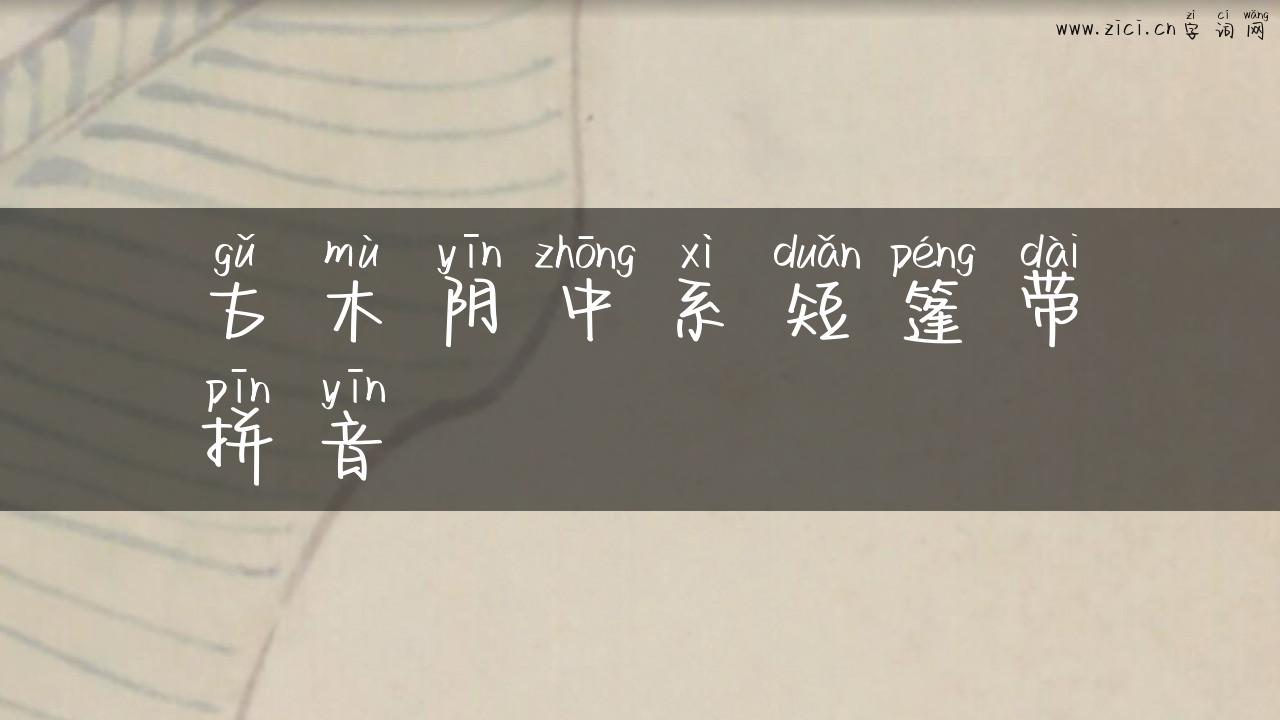 zì cí wǎng
www.zici.cn 字词网
gǔ mù yīn zhōng xì duǎn péng dài
古木阴中系短篷带
pīn yīn
拼音